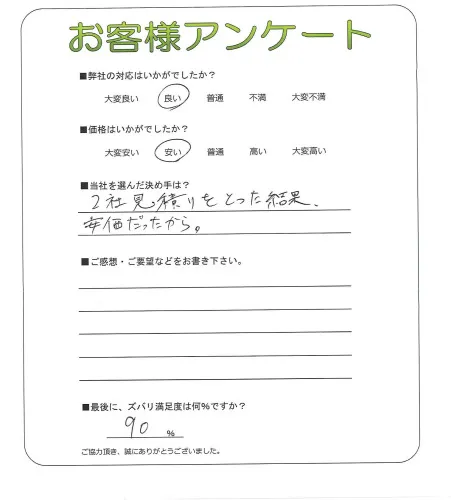 お客様アンケート
■弊社の対応はいかがでしたか？
大変良い 良い 普通 不満 大変不満
■価格はいかがでしたか？
大変安い 安い 普通 高い 大変高い
■当社を選んだ決め手は？
2社見積りをとった結果、
安価だったから。
■ご感想・ご要望などをお書き下さい。
■最後に、ズバリ満足度は何％ですか？
90 ％
ご協力頂き、誠にありがとうございました。